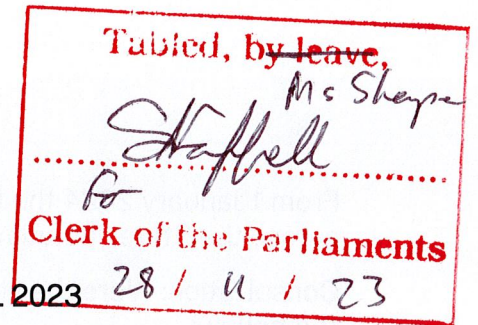 Tabled, by leave,
Ms Sharpe
for
Clerk of the Parliaments
2023 28 / 11 / 23